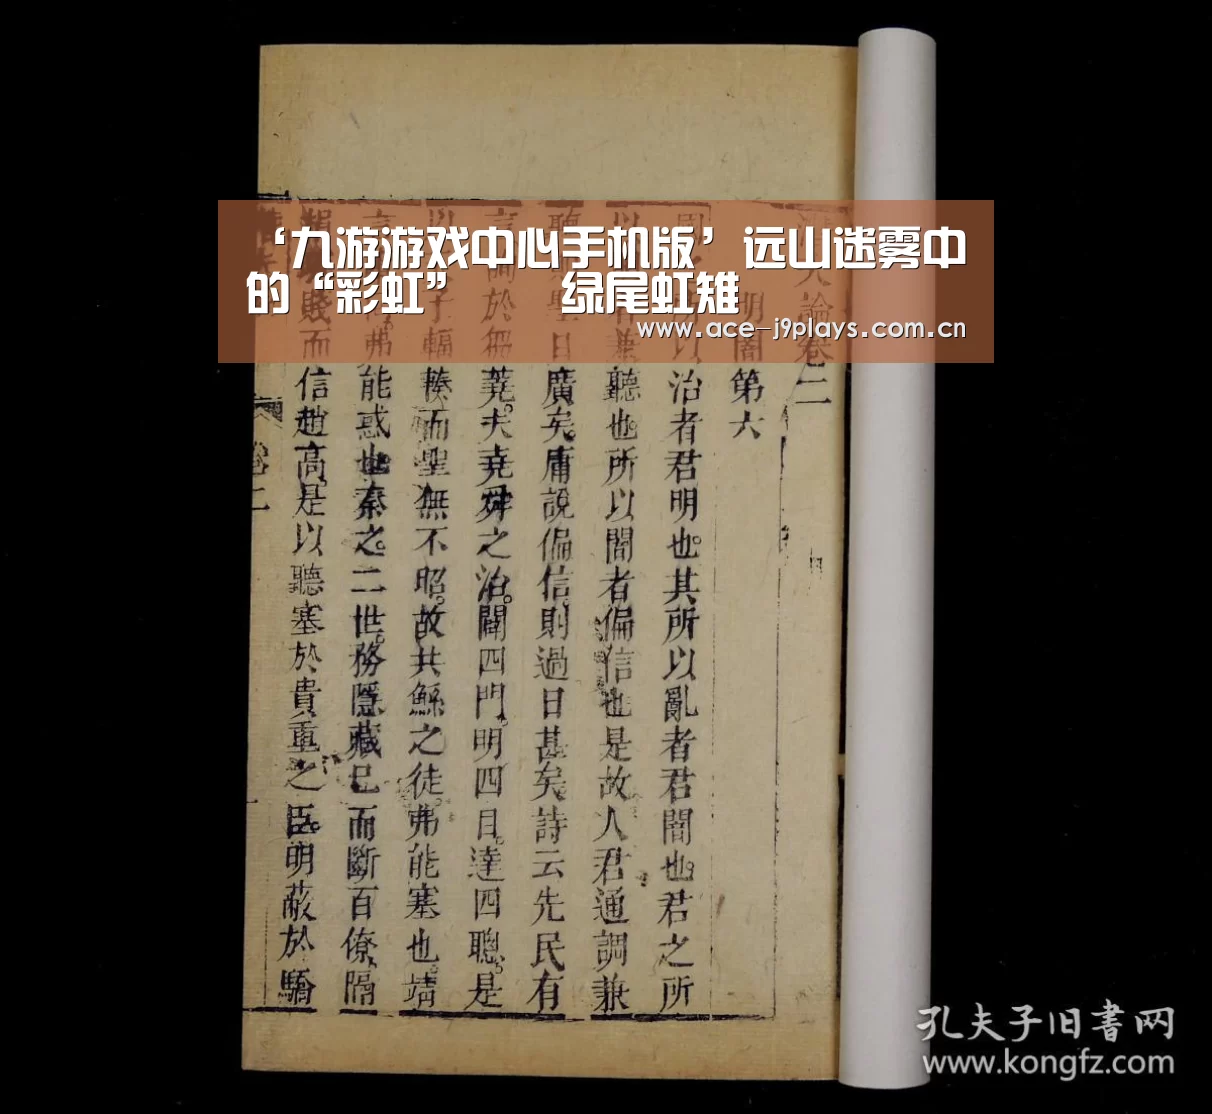 ‘九游游戏中心手机版’远山迷雾中
的“彩虹” 绿尾虹雉
www.ace-j9plays.com.cn
夫論卷二
明闇第六
以治者君明也。其所以亂者君闇也。君之所
以兼聽也所以闇者偏信也是故人君通調兼
聽日廣矣。庸說偏信。則過日甚矣詩云先民有
言於蕘。夫堯舜之治。闢四門。明四目。達四聰。是
以子輻輳而聖無不昭。故共鯀之徒弗能塞也。靖
言弗能惑也秦之。二世。務隱藏己而斷百僚。隔
賤而信趙高。是以聽塞於貴重之臣。明蔽於驕
卷二
孔夫子旧书网
www.kongfz.com